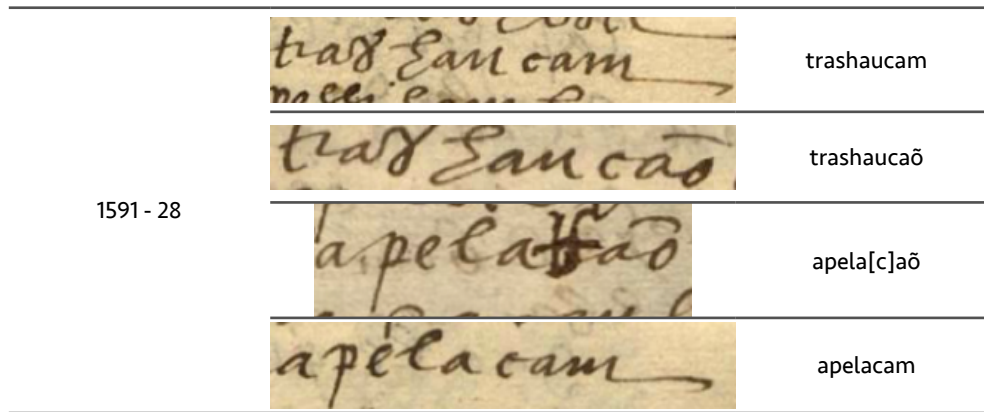 tras hau cam
trashaucam
tras hau caõ
trashaucaõ
1591 - 28
apela[c]aõ
apela cam
apelacam